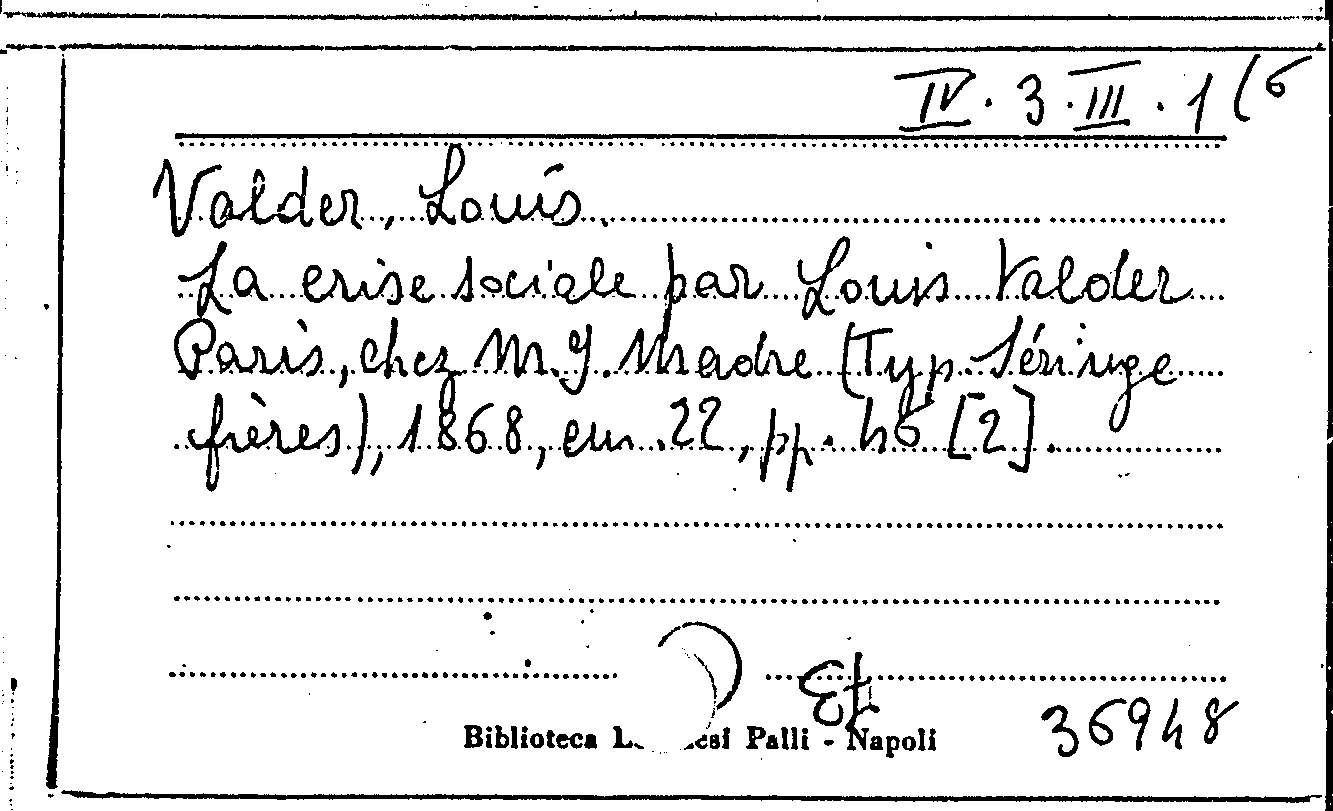 IV. 3. III. 1 (6
Valder, Louis.
La crise sociale par Louis Valder
Paris, chez M. J. Madre (Typ. Séringe
frères), 1868, cm. 22, pp. 46 [2].
36948
Biblioteca Palli - Napoli